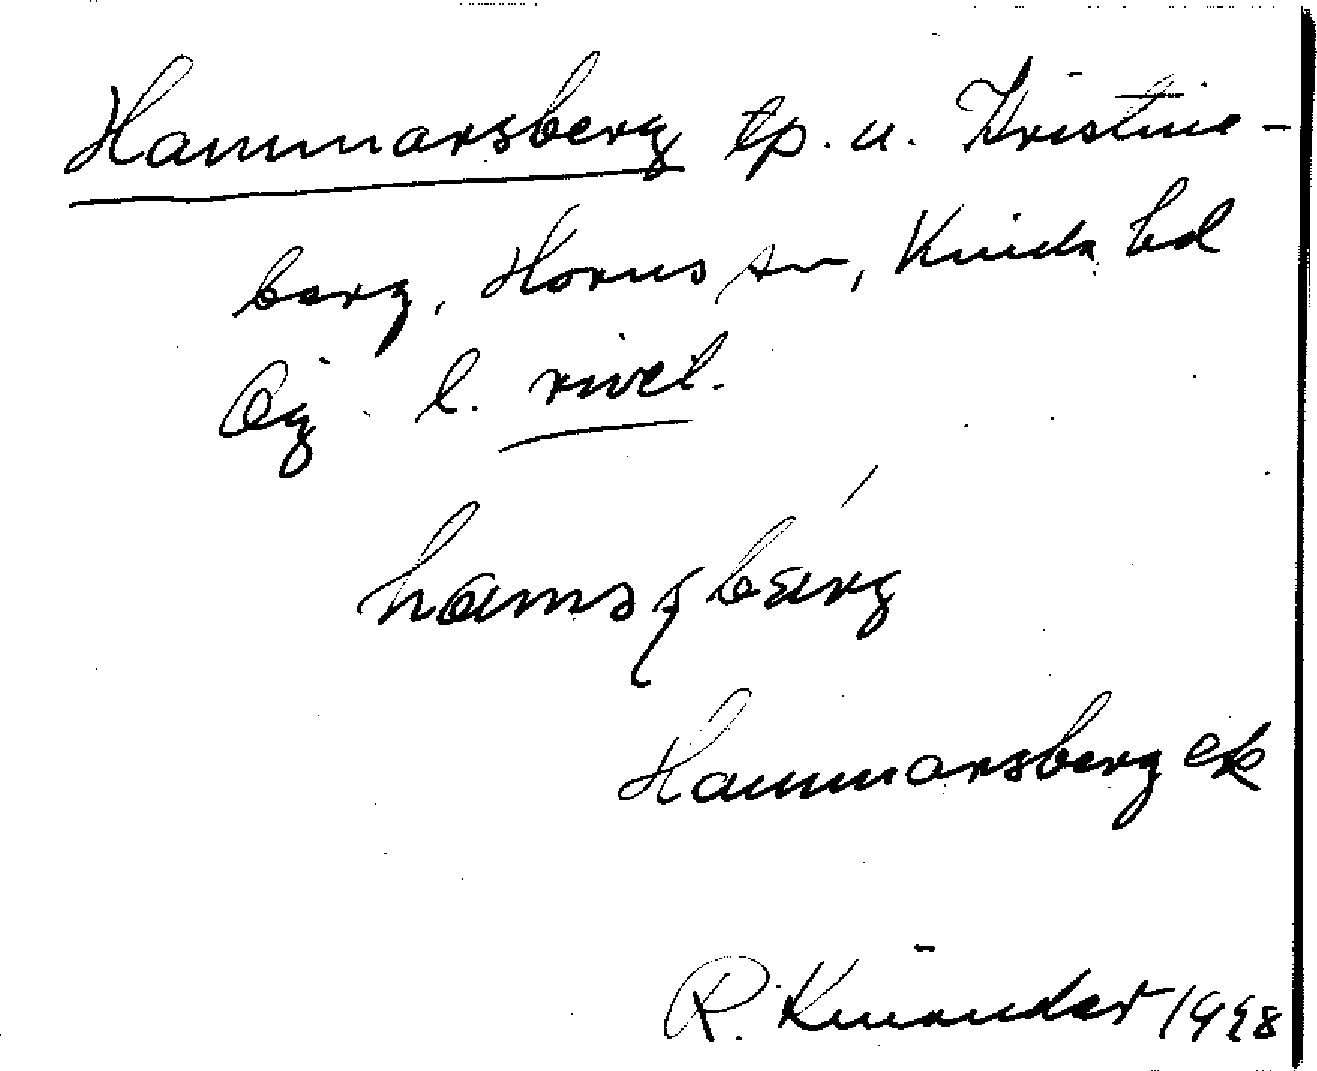 Hammarsberg tp. u. Kristine-
berg, Horns sn, Kinda hd
Ög. l. rivet.
hamsbärg
Hammarsberg ek
R. Kinander 1948